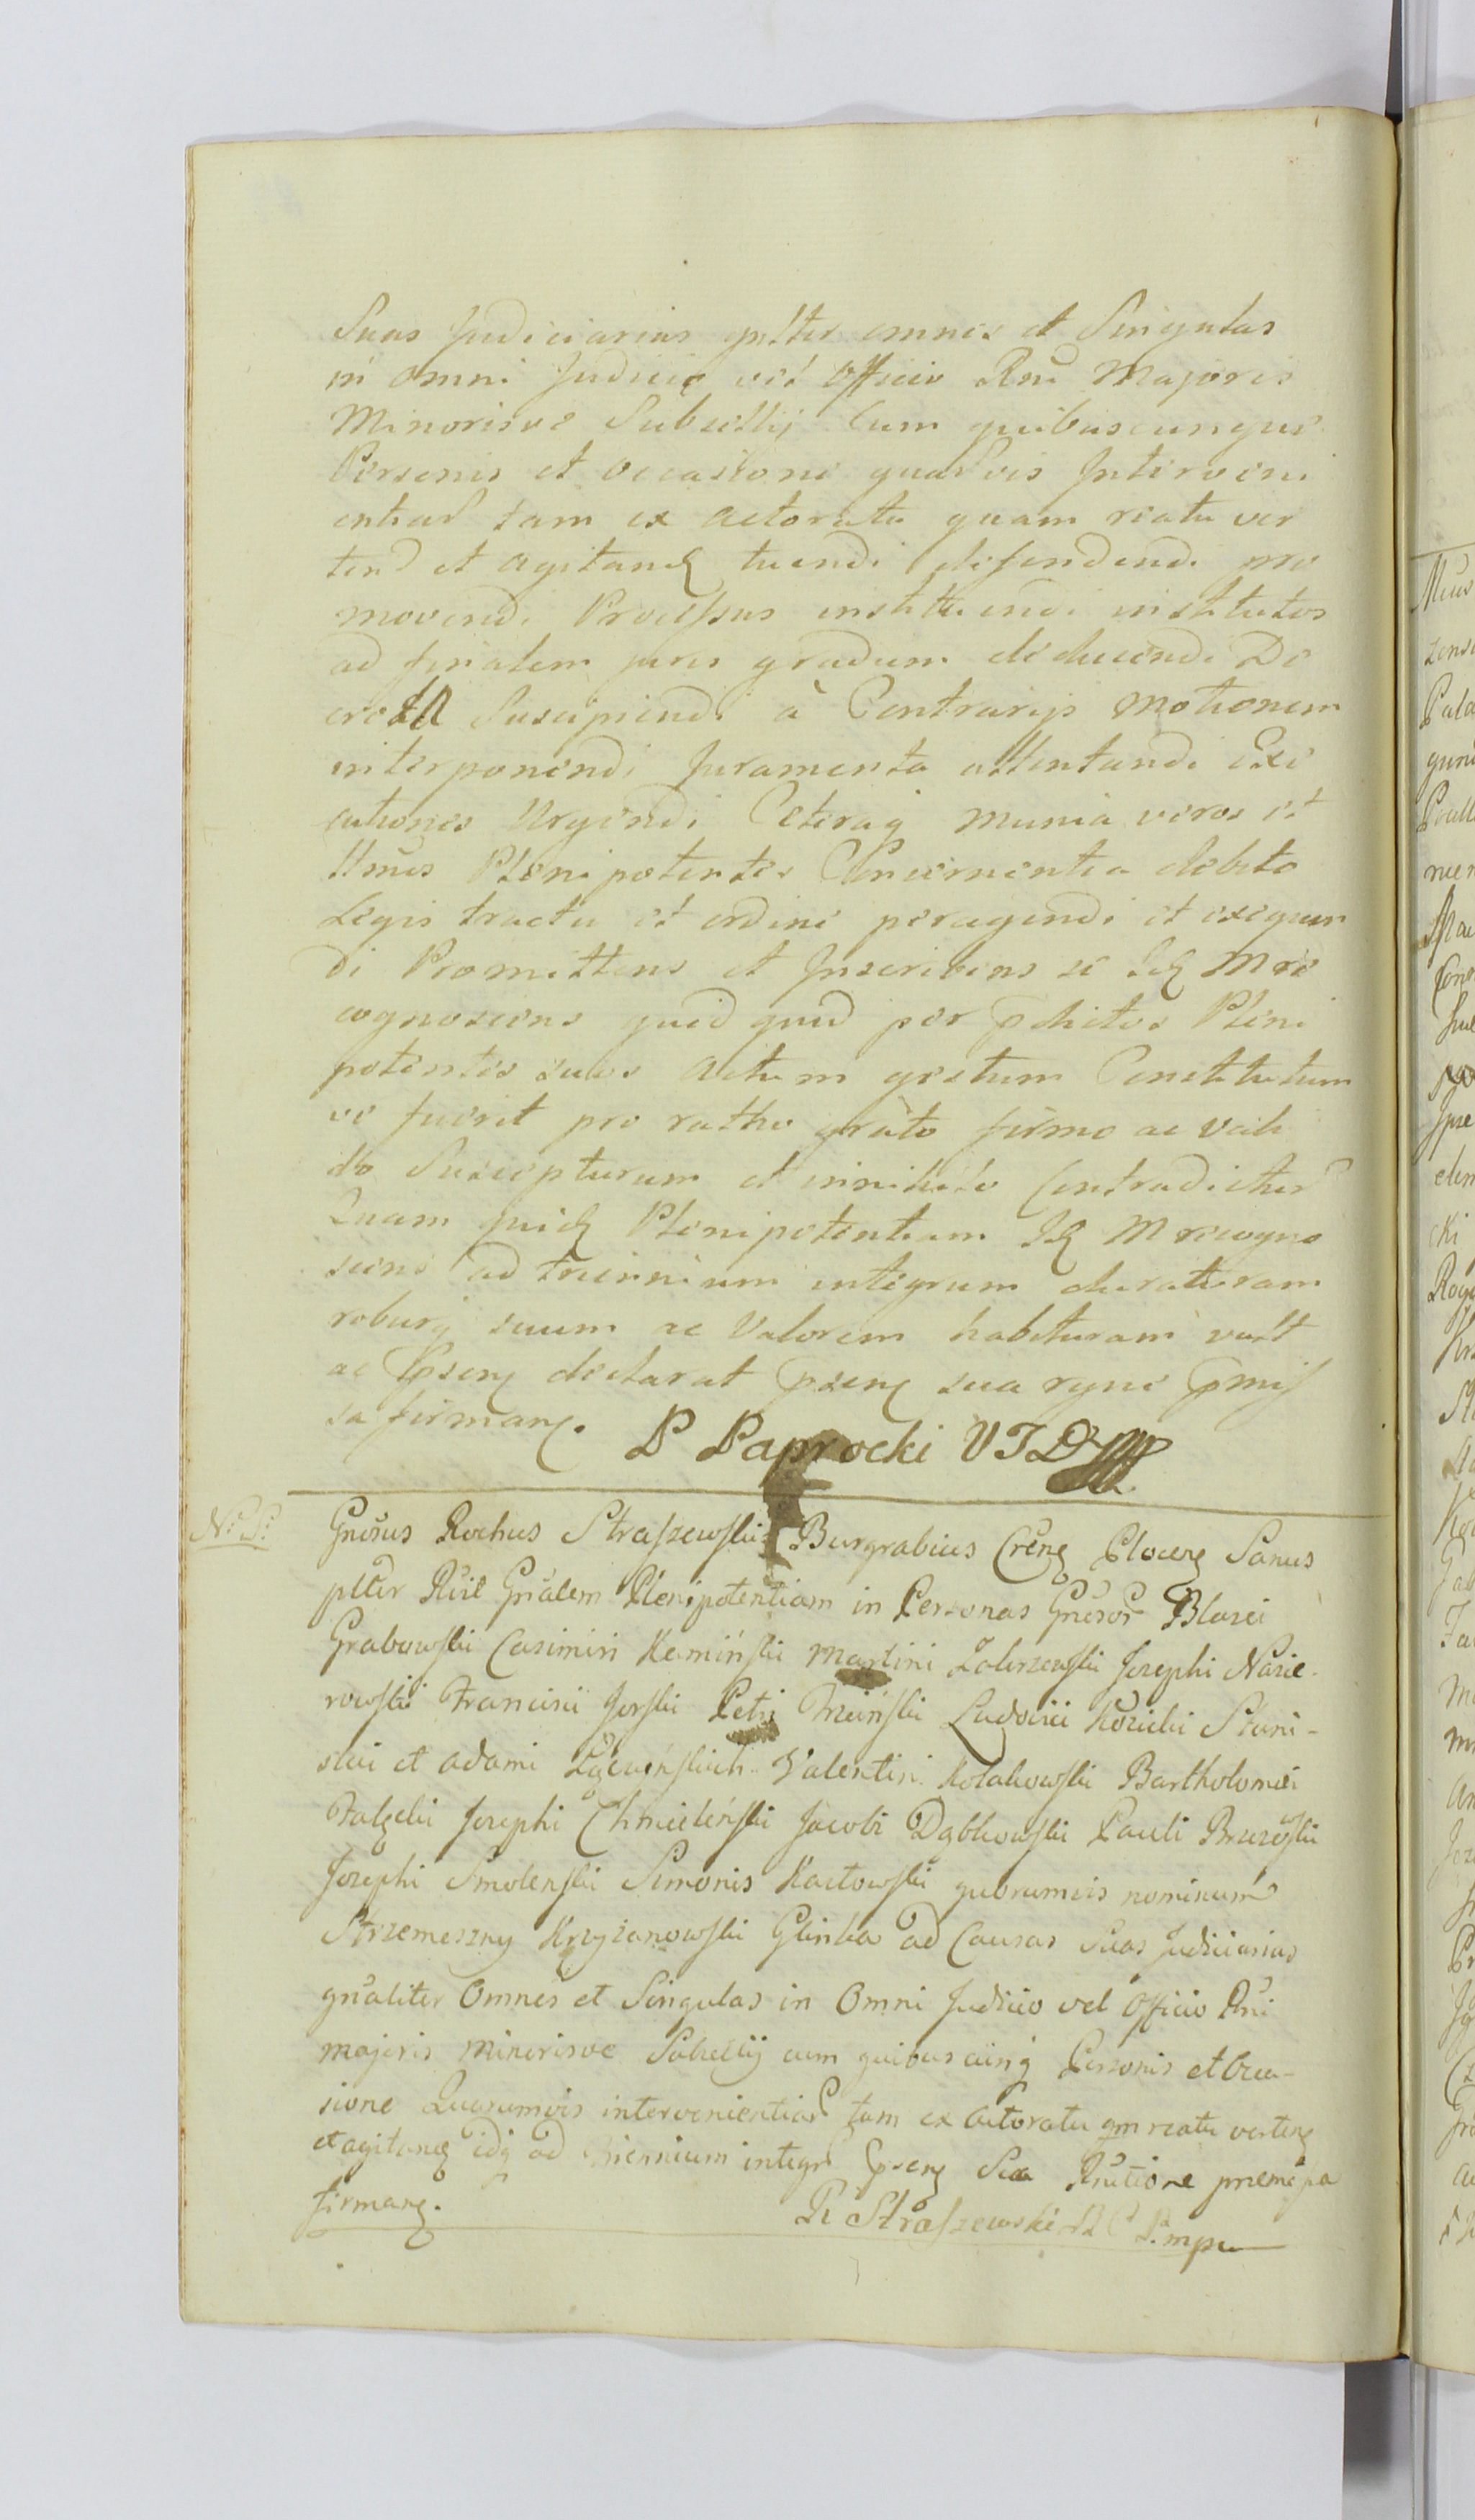 Suas Judiciarias gnlter omnes et Singulas
in omni Judicio vel Officio Rni Majoris
Minorisve Subsellij Cum quibuscunque
Personis et occasione quarvis Interveni
entiar tam ex actoratu quam reatu ver
tend et agitand tuendi defendendi pro
movendi Processus instituendi institutos
ad finalem juris gradum deducendi De
creta Suscipiendi à Contrarijs Motionem
interponendi Juramenta attentandi Exe
cutiones Urgendi Ceteraq munia veros et
Plenipotentes Concernentia debito
Legis tractu et ordine peragendi et exequen
di Promittens et Inscribens se Id M re
cognoscens quid quid per pdictos Pleni
potentes suos actum gestum Constitutum
ve fuerit pro ratho grato firmo ac vali
do Suscepturum et in nihilo Contradictur
Quam quid Plenipotentiam Id M recogno
scens ad triennium integrum duraturam
roburq suum ac Valorem habituram vult
ac Psens declarat psens sua rgne pmis
sa firmans.
P Paprocki V J D
N: S:
Gnrosus Rochus Straszewski Burgrabius Crens Plocens Sanus
plter Rcit Gnralem Plenipotentiam in Personas Gnrosor Blasei
Grabowski Casimiri Kamiński Martini Zakrzewski Josephi Nasie-
rowski Francisci Jerski Petri Miński Ludovici Kozicki Stani-
slai et adami Łączyńskich Valentini Kołakowski Bartholomei
Falęcki Josephi Chmieleński Jacobi Dąbkowski Pauli Brzezoski
Josephi Smolenski Simonis Kactowski quorumvis nominum
Strzemeszny Krzyżanowski Glinka ad Causas Suas Judiciarias
gnraliter Omnes et Singulas in Omni Judicio vel Officio Rni
majoris minorisve Subsellij cum quibuscunq Personis et Occa-
sione Quarumvis intervenientiar tam ex actoratu qm reatu vertens
et agitans idq ad triennium integr psens Sua Rnutione praemissa
firmans.
R Straszewski B C P. mpa